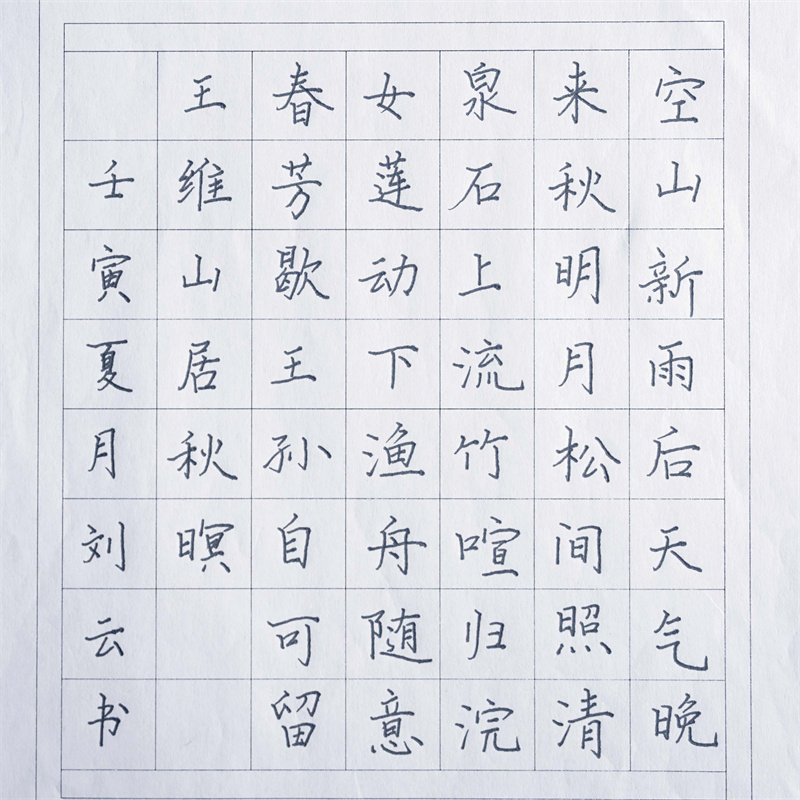 空山新雨后天气晚
来秋明月松间照清
泉石上流竹喧归浣
女莲动下渔舟随意
春芳歇王孙自可留
王维山居秋暝
壬寅夏月刘云书